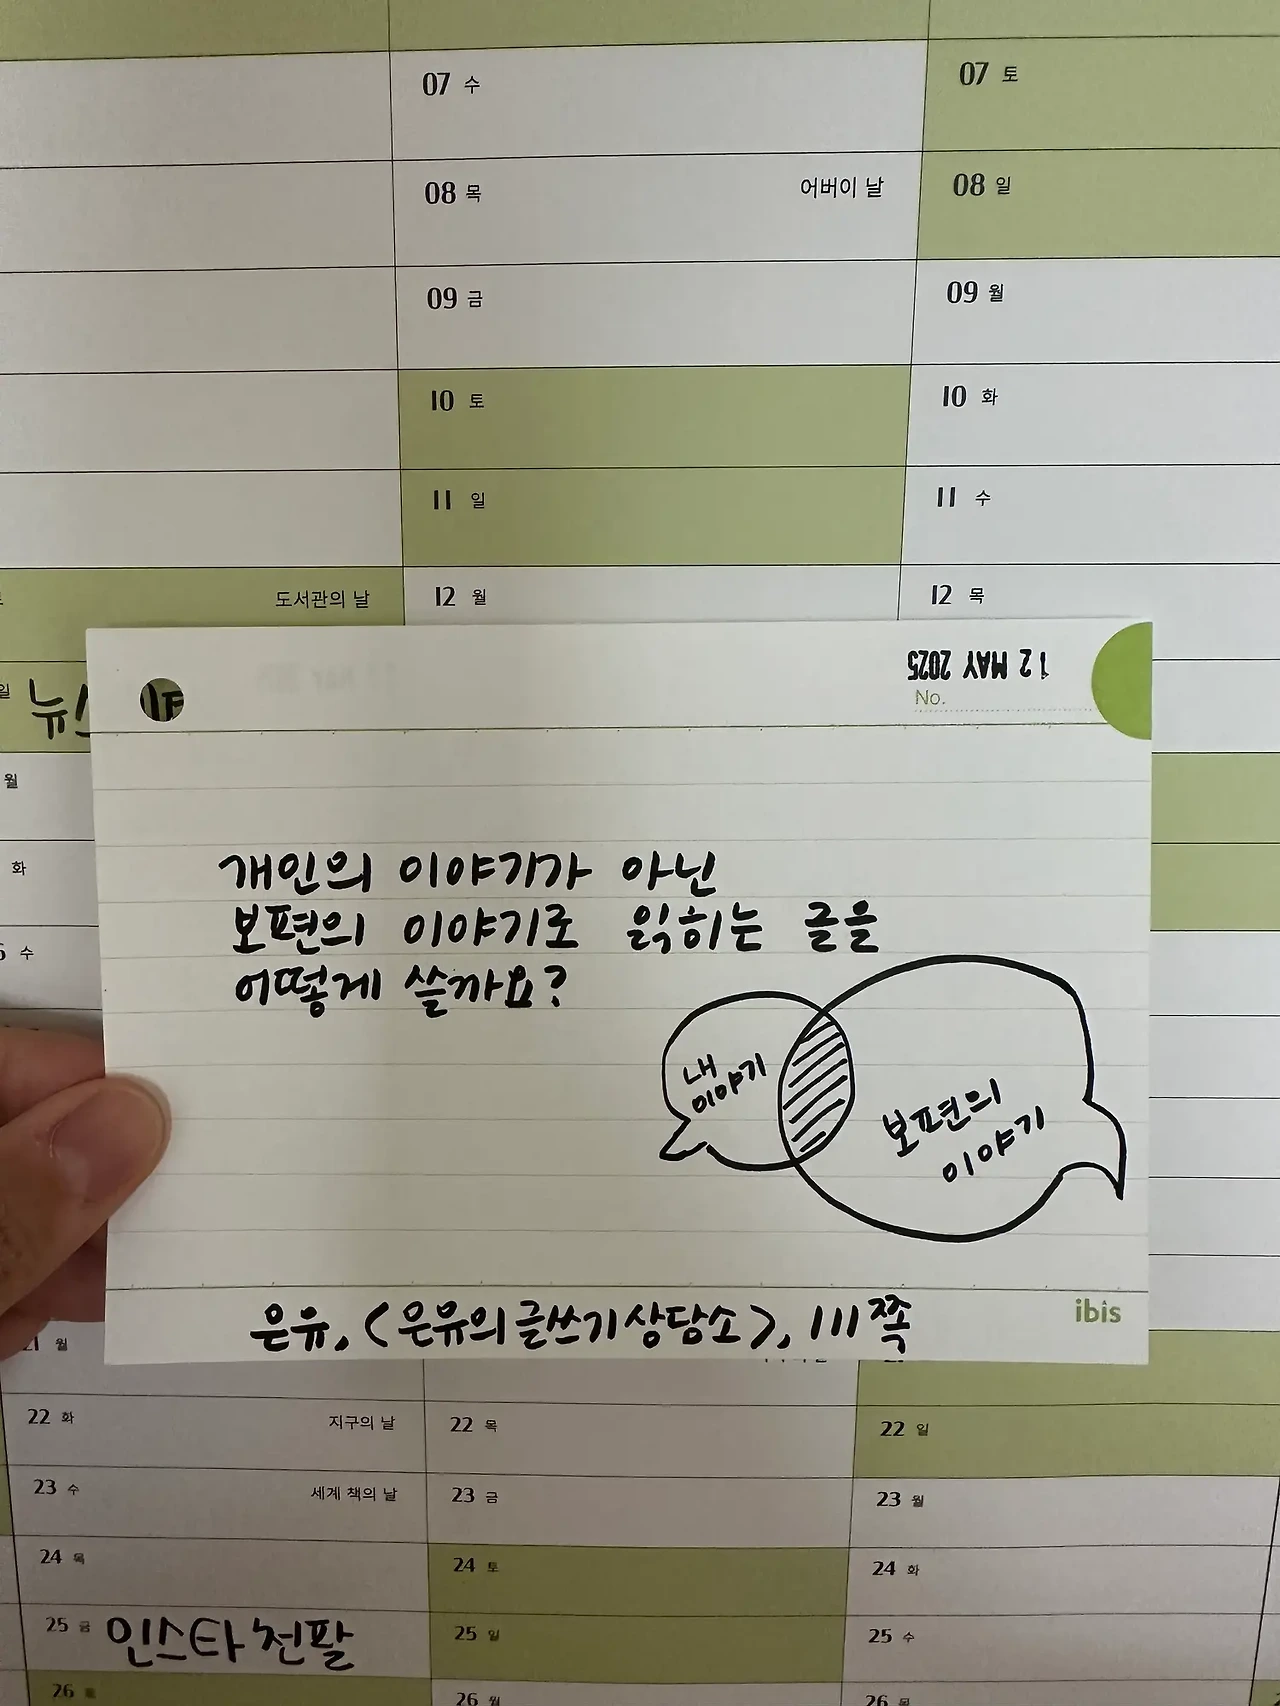 07 수
07 토
08 목 어버이 날
08 일
09 금
09 월
10 토
10 화
11 일
11 수
도서관의 날
12 월
12 목
일 뉴스
월
화
수
12 MAY 2025
No.
개인의 이야기가 아닌
보편의 이야기로 읽히는 글을
어떻게 쓸까요?
내
이야기
보편의
이야기
은유, <은유의 글쓰기 상담소>, 111쪽
ibis
21 월
22 화 지구의 날
22 목
22 일
23 수 세계 책의 날
23 금
23 월
24 목
24 토
24 화
25 금 인스타 천팔
25 일
25 수
26 토
26 월
26 목